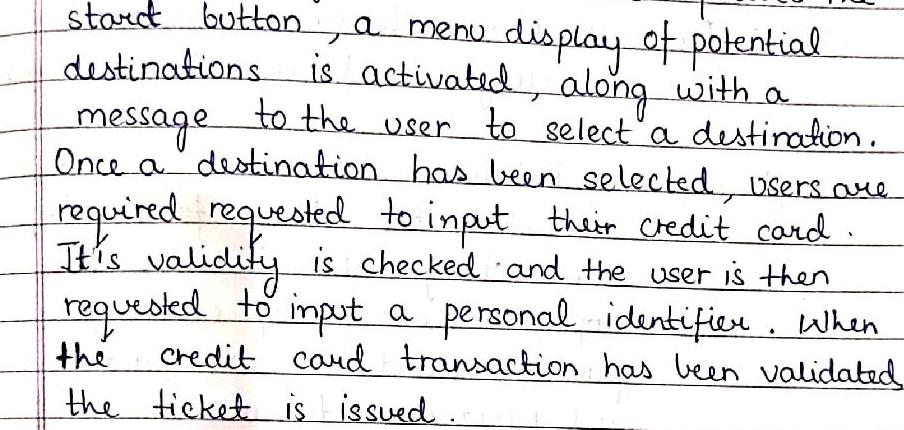 start button, a menu display of potential
destinations is activated, along with a
message to the user to select a destination.
Once a destination has been selected, users are
required requested to input their credit card.
It's validity is checked and the user is then
requested to input a personal identifier. When
the credit card transaction has been validated,
the ticket is issued.